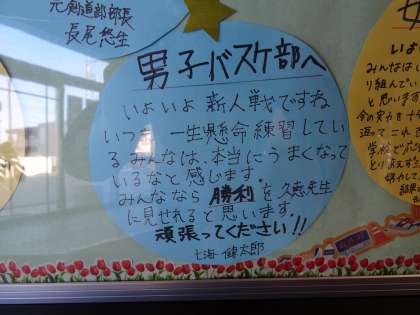 元剣道部部長
長尾悠生
男子バスケ部へ
いよいよ新人戦ですね
いつも一生懸命練習してい
るみんなは、本当にうまくなって
いるなと感じます。
みんななら勝利を久恵先生
に見せれると思います。
頑張ってください!!
七海 健太郎
女
いよ
みんなはし
り組んでい
と思います
今の実力を十